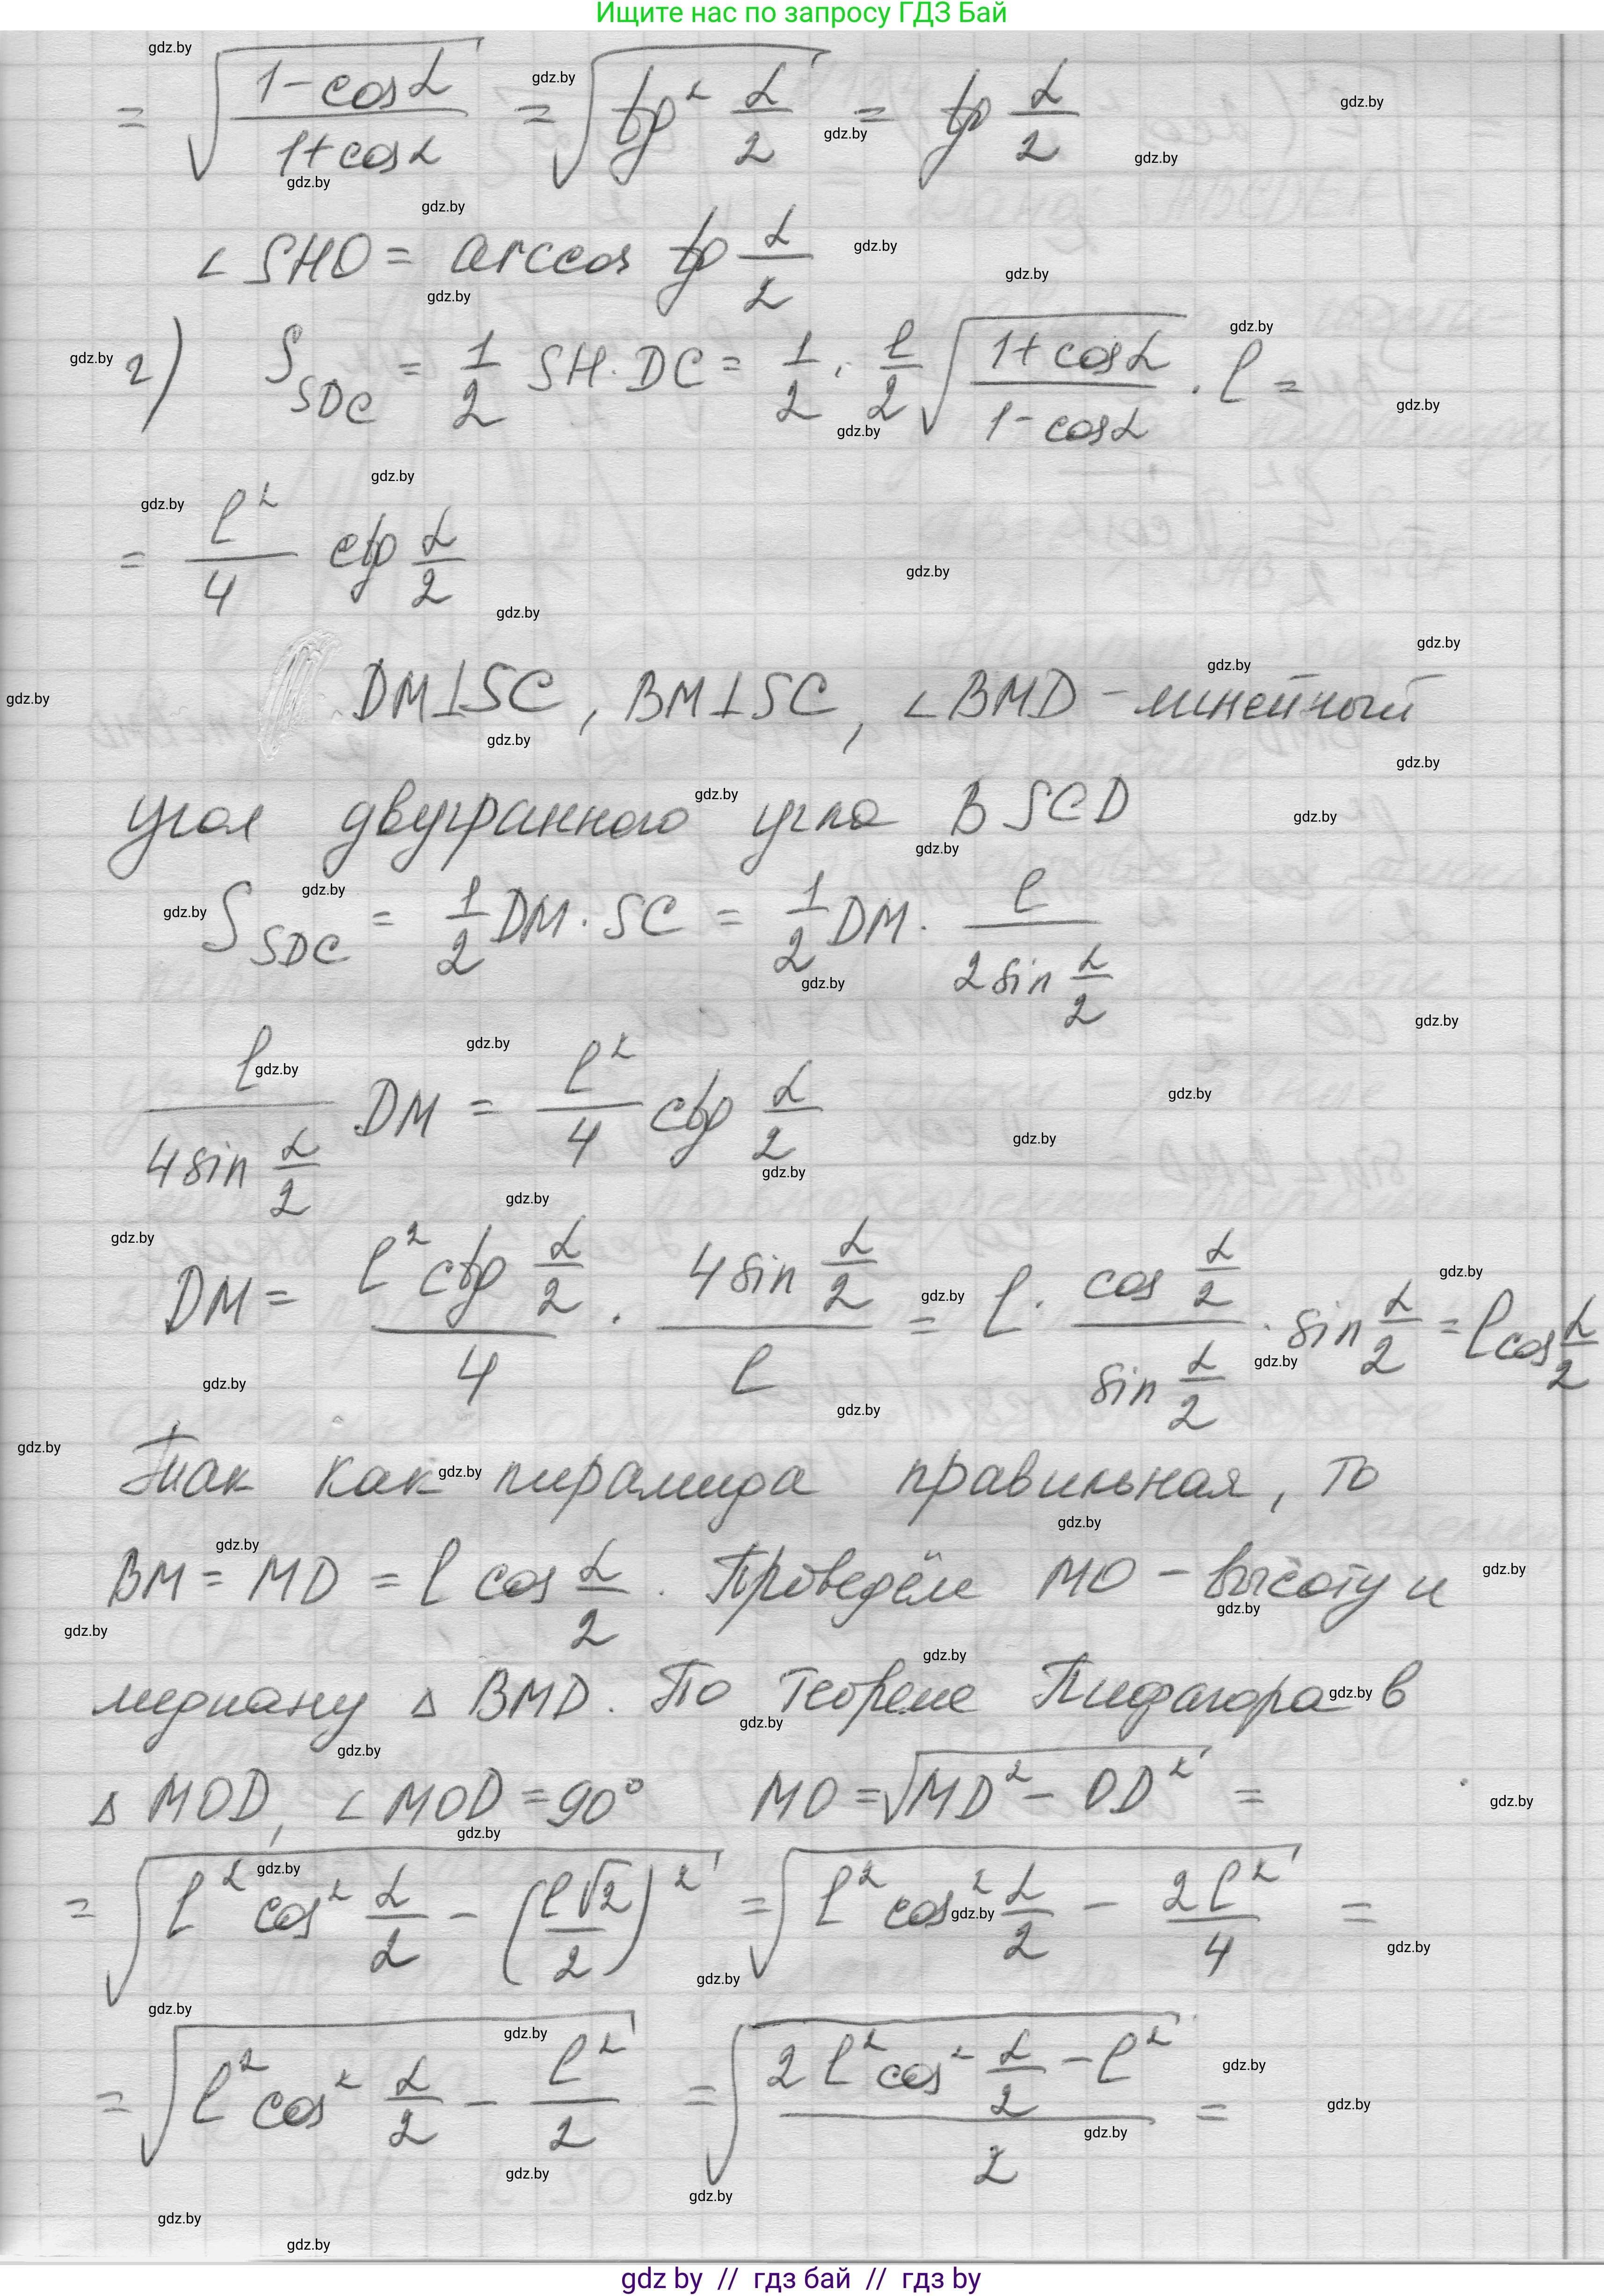 Ищите нас по запросу ГДЗ Бай
= √((1-cosα)/(1+cosα)) = √(tg² α/2) = tg α/2
∠SHO = arccos tg α/2
2) S_SDC = 1/2 SH · DC = 1/2 · l/2 √((1+cosα)/(1-cosα)) · l =
= l²/4 ctg α/2
DM⊥SC, BM⊥SC, ∠BMD - линейный
угол двугранного угла BSCD
S_SDC = 1/2 DM · SC = 1/2 DM · l/(2 sin α/2)
l/(4 sin α/2) DM = l²/4 ctg α/2
DM = (l² ctg α/2)/4 · (4 sin α/2)/l = l · (cos α/2)/(sin α/2) · sin α/2 = l cos α/2
Так как пирамида правильная, то
BM = MD = l cos α/2. Проведём MO - высоту и
медиану △ BMD. По теореме Пифагора в
△ MOD, ∠MOD = 90° MO = √(MD² - OD²) =
= √(l² cos² α/2 - (l√2/2)²) = √(l² cos² α/2 - 2l²/4) =
= √(l² cos² α/2 - l²/2) = √((2l² cos² α/2 - l²)/2) =
gdz by // гдз бай // гдз by